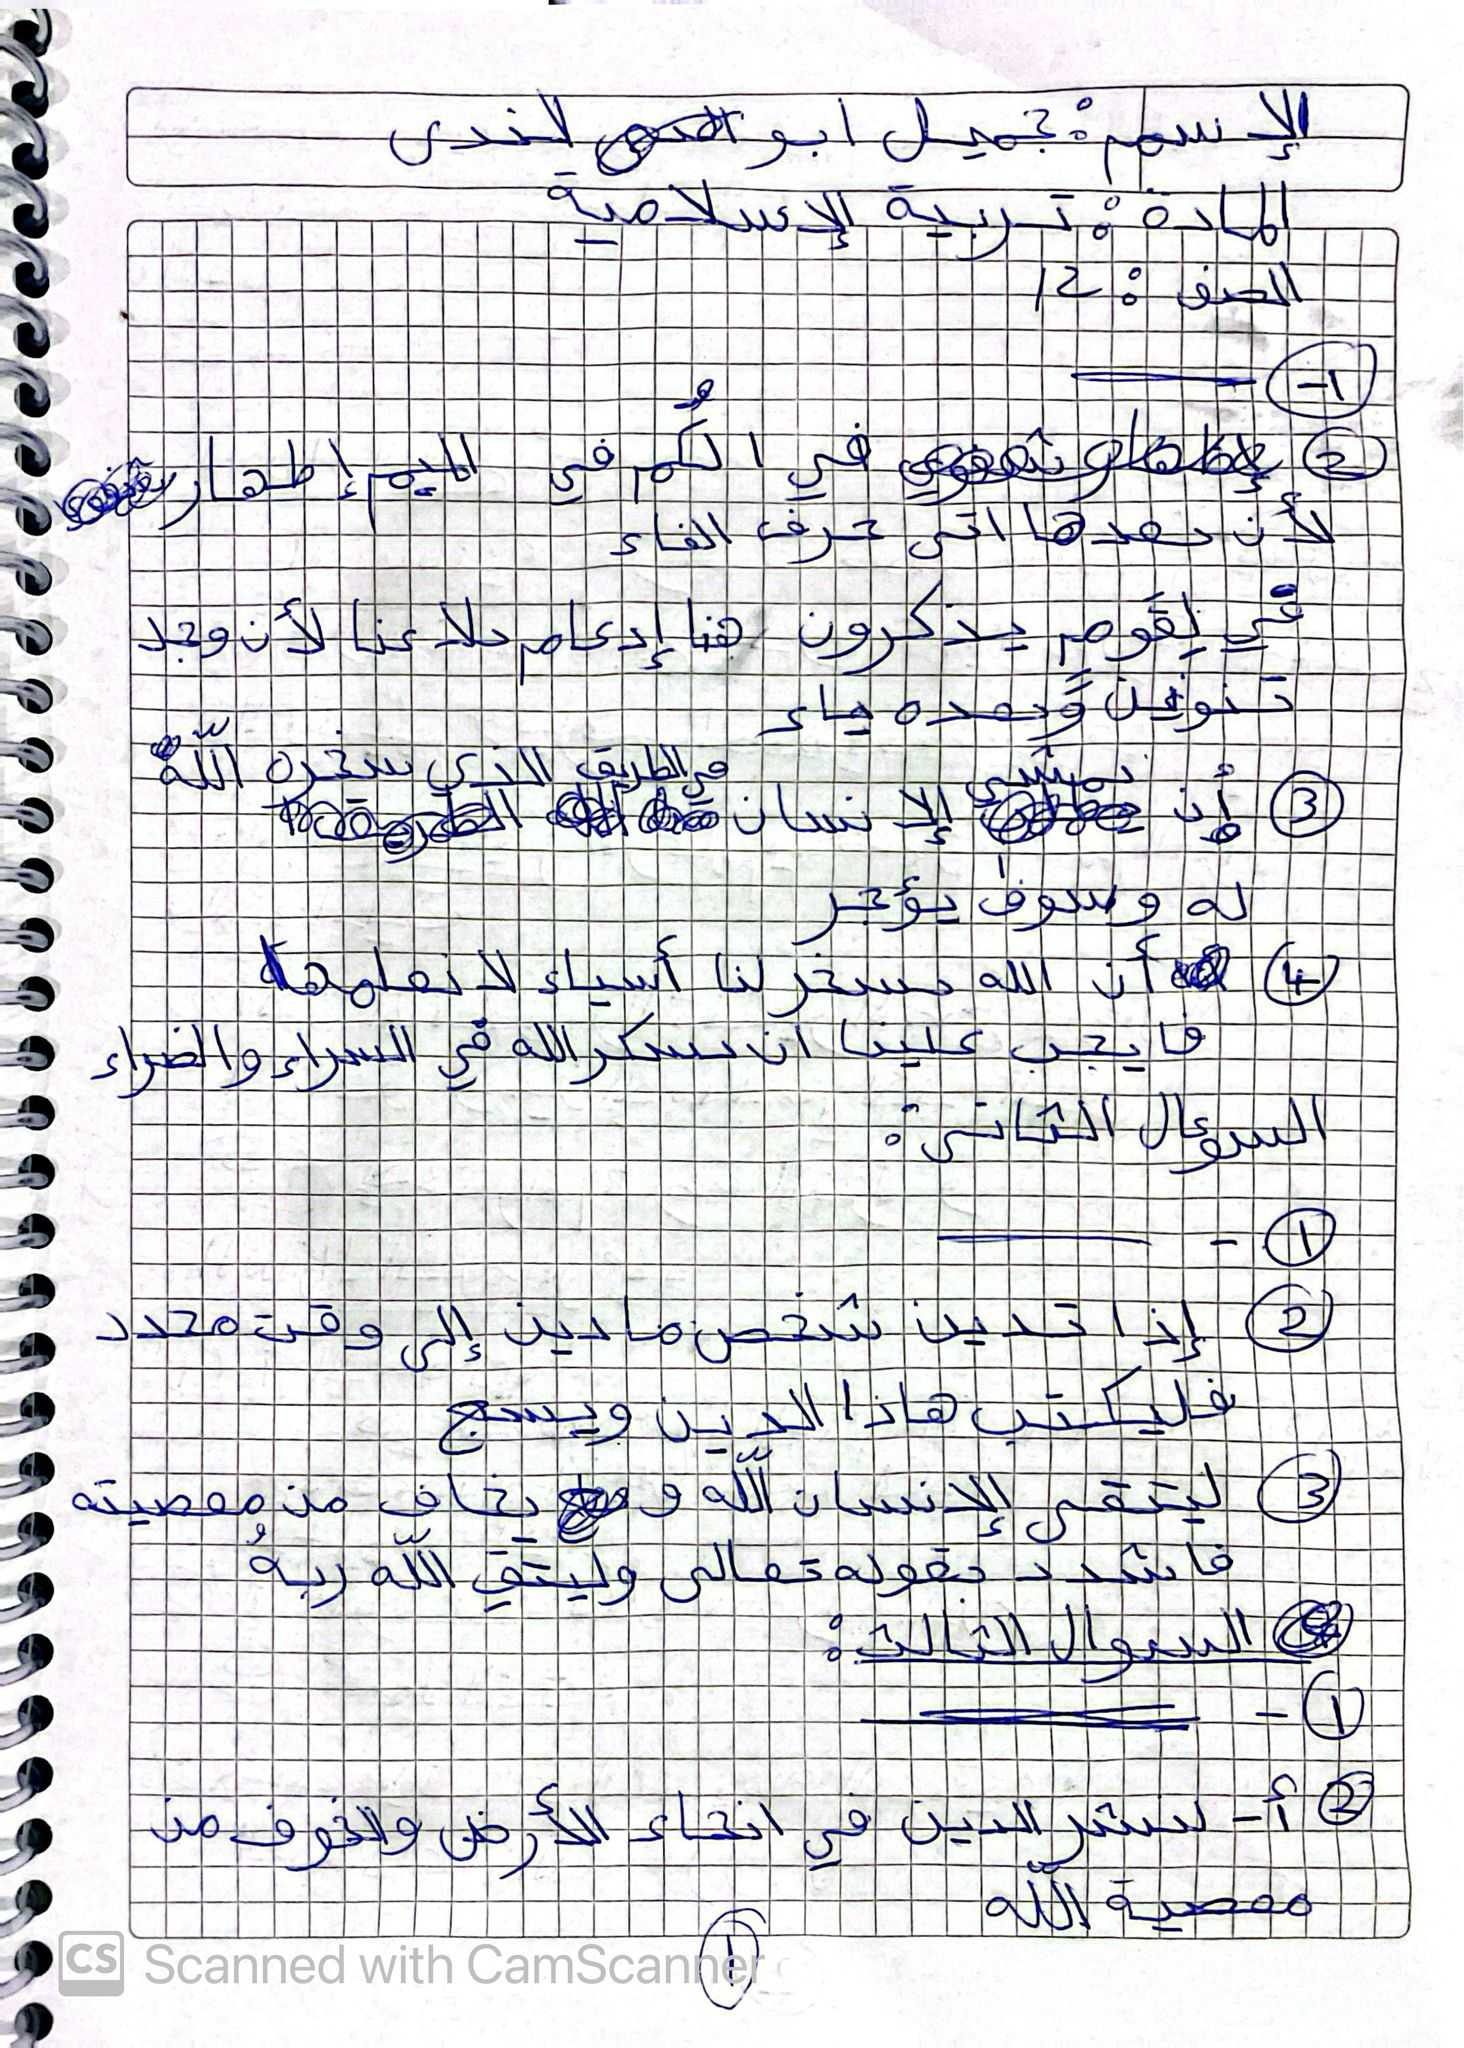 الإسم: جميل ابو لندى
المادة: تربية الإسلامية
الصف: 12
1-
2 في الكم في الميم إظهار
لأن بعدها اتى حرف الفاء
في لِقَومٍ يذكرون هنا إدغام بلا غنا لأن وجد
تنوين وبعده ياء
3 أن يمشي الإنسان في الطريق الذي سخره اللّه
له وسوف يؤجر
4 أن الله مسخر لنا أسياء لا نعلمها
فا يجب علينا ان نسكر الله في السراء والضراء
السؤال الثاني:
1 -
2 إذا تدين شخص ما دين إلى وقت محدد
فليكتب هاذا الدين ويسج
3 ليتقي الإنسان اللّه و يخاف من معصيته
فا شدد بقوله تعالى وليتقِ اللّه ربهُ
السوال الثالث:
1 -
2 أ- لينتشر الدين في انحاء الأرض والخوف من
معصية اللّه
1
CS Scanned with CamScanner